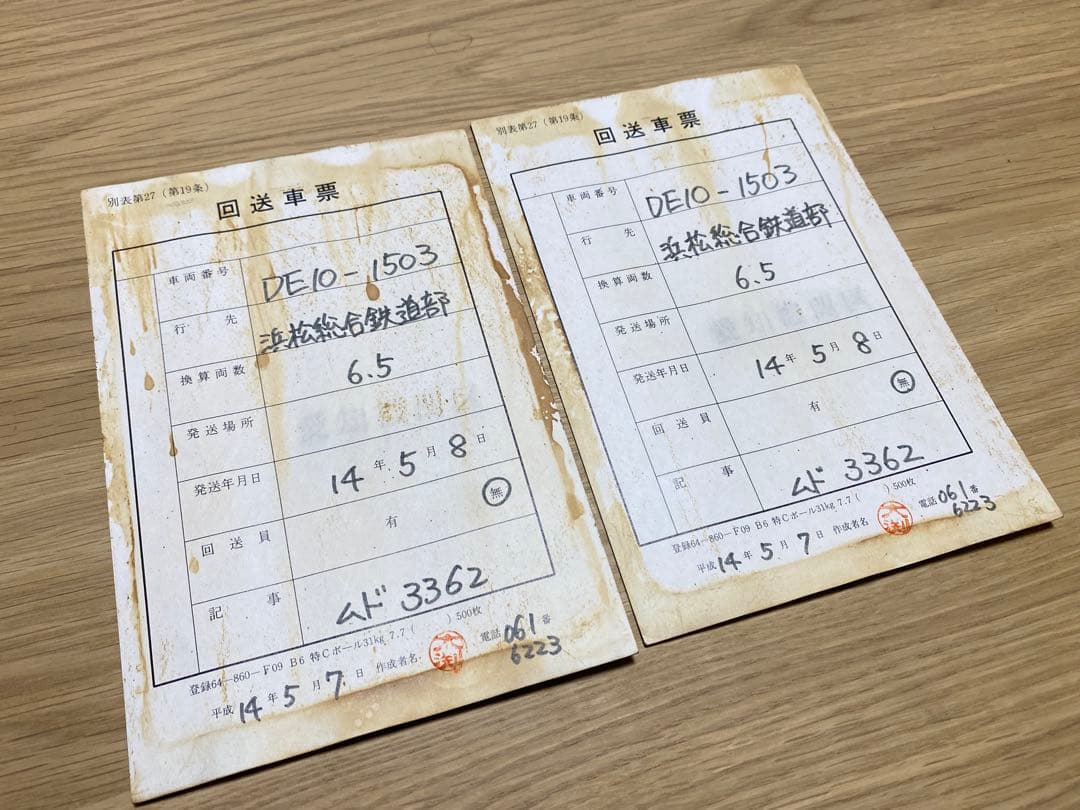 別表第27(第19条)
回送車票
車両番号 DE10-1503
行先 浜松総合鉄道部
換算両数 6.5
発送場所
発送年月日 14年5月8日
回送員 有 無
記事 ムド3362
登録64-860-F09 B6 特Cボール31kg 7.7( )500枚
平成14年5月7日 作成者名 電話061番
6223
別表第27(第19条)
回送車票
車両番号 DE10-1503
行先 浜松総合鉄道部
換算両数 6.5
発送場所
発送年月日 14年5月8日
回送員 有 無
記事 ムド3362
登録64-860-F09 B6 特Cボール31kg 7.7( )500枚
平成14年5月7日 作成者名 電話061番
6223